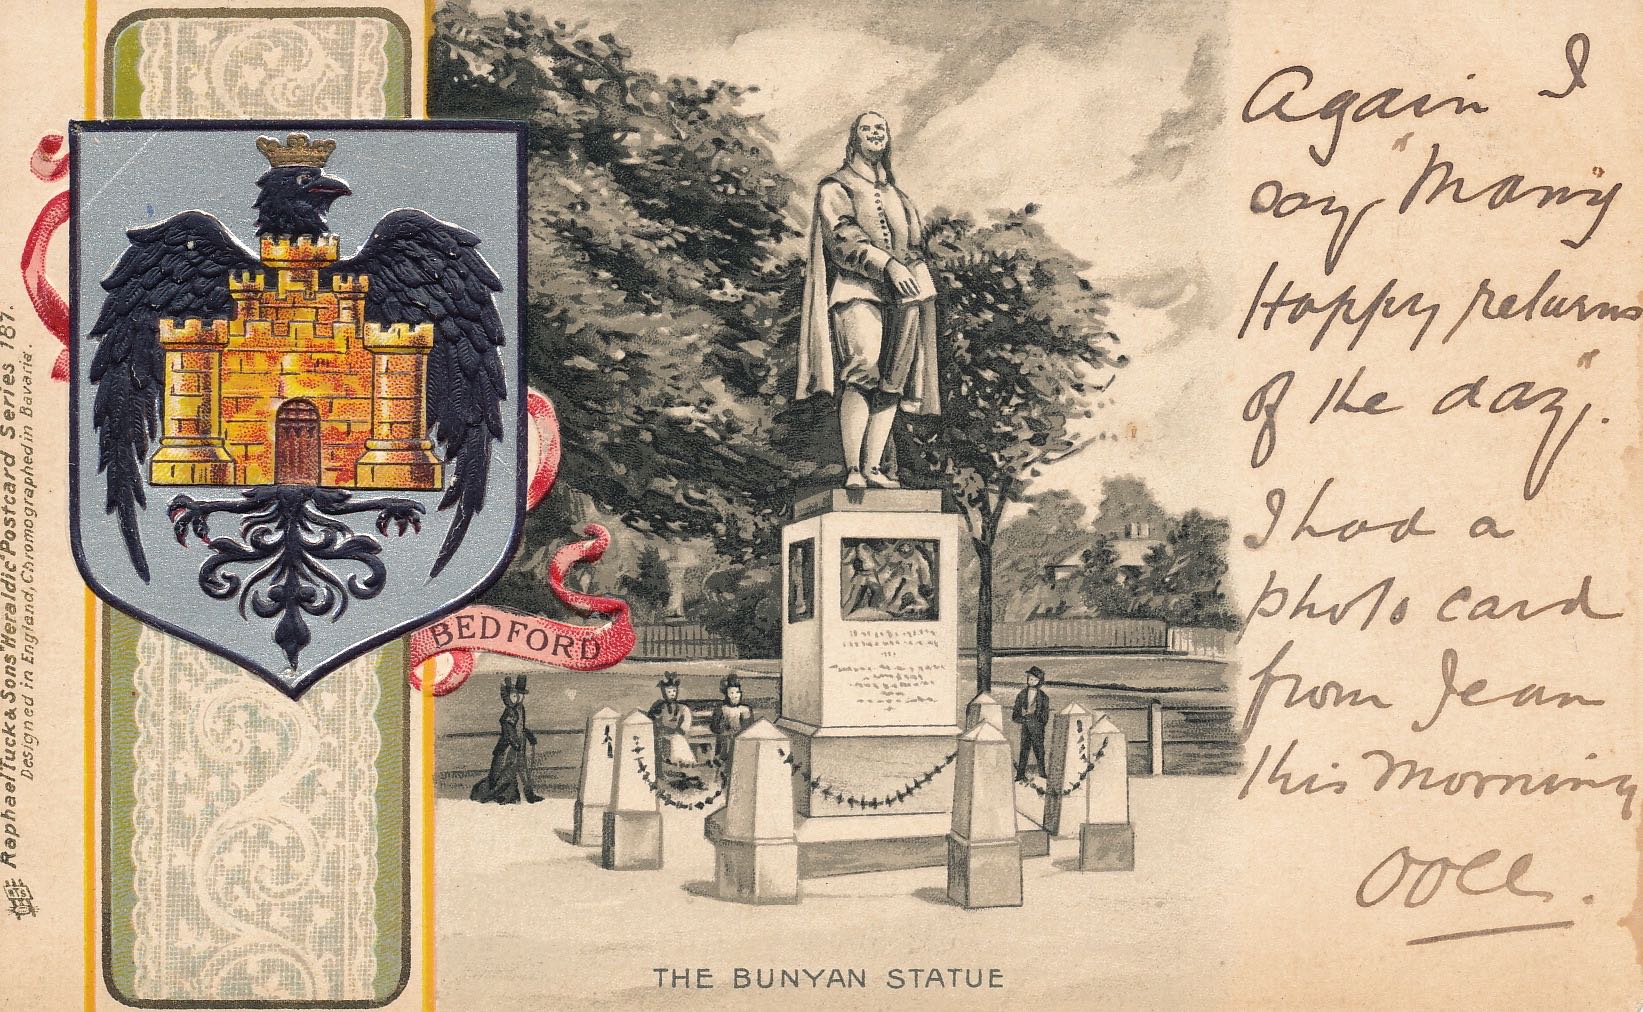 Raphael Tuck & Sons "Heraldic" Postcard Series 187.
Designed in England, Chromographed in Bavaria.
BEDFORD
THE BUNYAN STATUE
Again I
say "Many
Happy returns
of the day".
I had a
photo card
from Jean
this morning